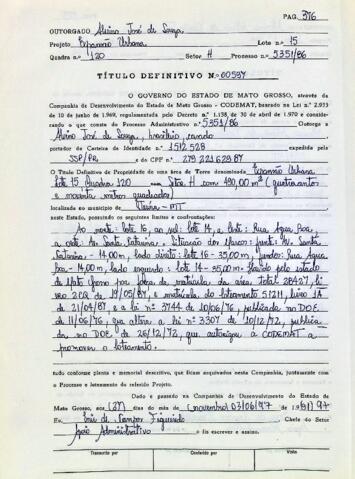 PAG. 376
OUTORGADO Alvino José de Souza
Projeto Expansão Urbana Lote n.º 15
Quadra n.º 120 Setor H Processo n.º 5351/86
TÍTULO DEFINITIVO N.º 00537
O GOVERNO DO ESTADO DE MATO GROSSO, através da
Companhia de Desenvolvimento do Estado de Mato Grosso - CODEMAT, baseado na Lei n.º 2.933
de 10 de junho de 1969, regulamentada pelo Decreto n.º 1.138 de 30 de abril de 1970 e considerando
o que consta do Processo Administrativo n.º 5351/86 Outorga a
Alvino José de Souza, brasileiro, casado
portador da Carteira de Identidade n.º 1512528 expedida pela
SSP/PR e do CPF n.º 279 221 629 87
O Título Definitivo de Propriedade de uma área de Terra denominada Expansão Urbana
Lote 15 Quadra 120 Setor H com 490,00 m² (quatrocentos
e noventa metros quadrados)
localizada no município de - MT
neste Estado, possuindo os seguintes limites e confrontações:
Ao norte: lote 16, ao sul: lote 14, a leste: Rua Água Boa,
a oeste: Av. Santa Catarina. Situação dos marcos: frente: Av. Santa
Catarina - 14,00m, lado direito: lote 16 - 35,00m, fundos: Rua Água
Boa - 14,00m, lado esquerdo: lote 14 - 35,00m. pelo estado
de Mato Grosso por força de matrícula da área total 28427, li
vro 2CQ de 19/05/87, e matrícula do loteamento 51211, livro
de 21/04/87 e a lei nº 3744 de 10/06/76, publicada no D.O.E.
de 11/06/76, que altera a lei nº 3307 de 10/12/72, publica
da no D.O.E. de 26/12/72, que autoriza a CODEMAT a
promover o loteamento.
tudo conforme planta e memorial descritivo, que ficam arquivados nesta Companhia, juntamente com
o Processo e loteamento do referido Projeto.
Dado e passado na Companhia de Desenvolvimento do Estado de
Mato Grosso, aos dias do mês de (novembro) 03/06/97 de 19 97
Eu, de Campos Figueiredo Chefe do Setor
Apoio Administrativo o fiz escrever e assino.
Transcrito por Conferido por Visto